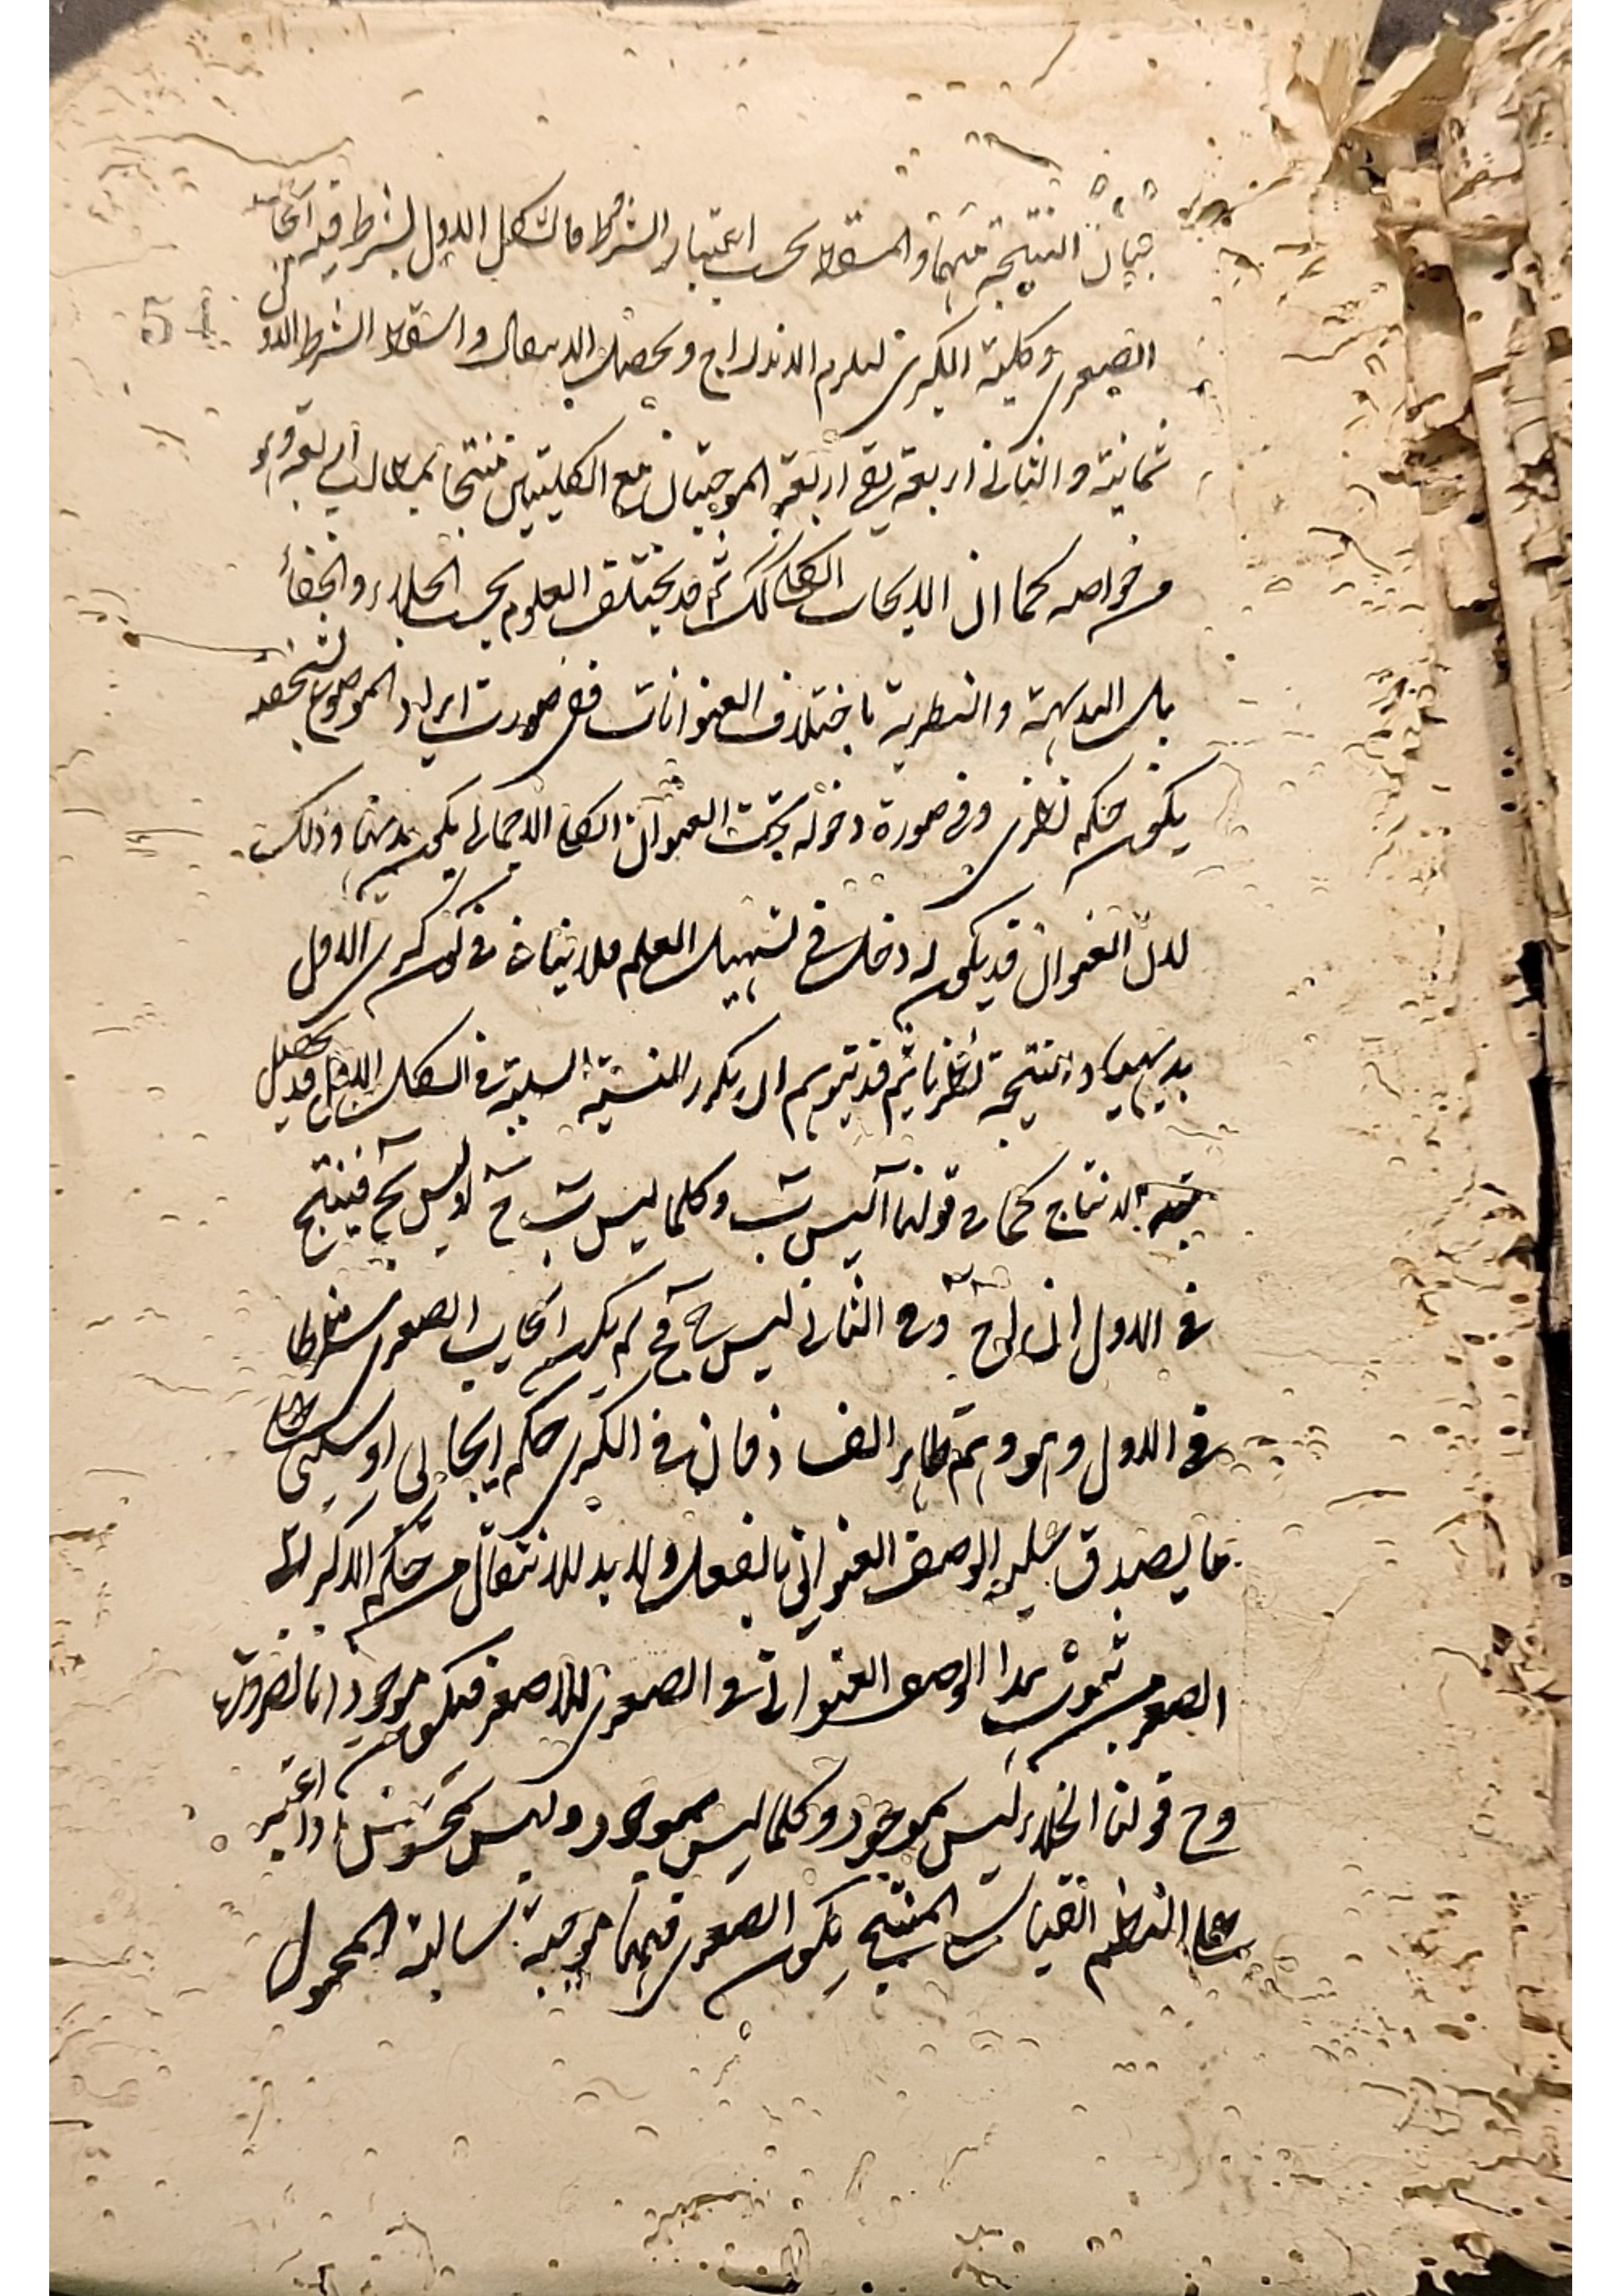 بيان النتيجة منهما والمسقط بحسب اعتبار الشرط فالشكل الاول يشترط فيه ايجاب
54
الصغرى وكلية الكبرى ليلزم الاندراج ويحصل الانتقال واسقط الشرط الاول
ثمانية والثانى اربعة بقى اربعة الموجبتان مع الكليتين منتجا لمطالب اربعة وهو
من خواصه كما ان الايجاب الكلى كذلك ثم قد يختلف العلوم بحسب الجلاء والخفاء
بل البديهية والنظرية باختلاف العنوانات ففى صورت ايراد الموضوع بشخصه
يكون حكمه نظرى وفى صورة دخوله تحت العنوان الكلى الاجمالى يكون بديهيا وذلك
لان العنوان قد يكون له دخل فى تسهيل العلم فلا ينافى كون كبرى الاول
بديهيا والنتيجة نظريا ثم قد يتوهم ان تكرر النسبة السلبية فى الشكل الاول قد يحصل
به الانتاج كما فى قولنا آ ليس ب وكلما ليس ب ج او ليس ج فينتج
فى الاول ان ا ج وفى الثانى ليس ج فح لم يكن ايجاب الصغرى شرطا
فى الاول وهو وهم ظاهر الفساد فان فى الكبرى حكم ايجابى او سلبى على
ما يصدق عليه الوصف العنوانى بالفعل ولا بد للانتقال من حكم الاكبر الى
الصغر من ثبوت هذا الوصف العنوانى فى الصغرى للاصغر فيكون موجودا بالضرورة
وح قولنا الخلاء ليس بموجود وكلما ليس بموجود وليس بمحسوس اذا اعتبر
على النظم القياس المنتج يكون الصغرى فيهما موجبة سالبة المحمول